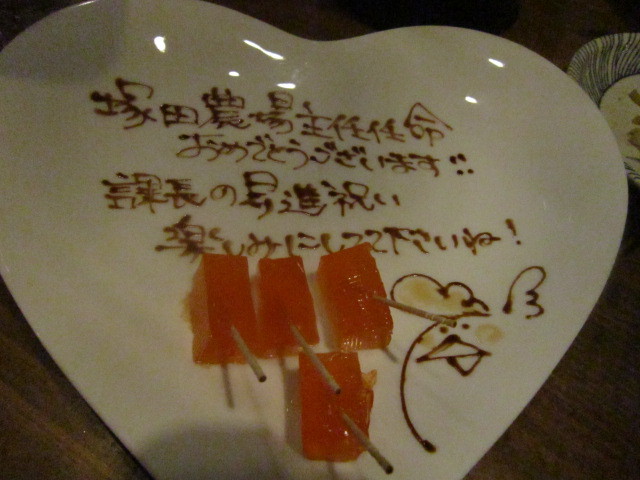 塚田農場主任任命
おめでとうございます!!
課長の昇進祝い
楽しみにしてて下さいね!